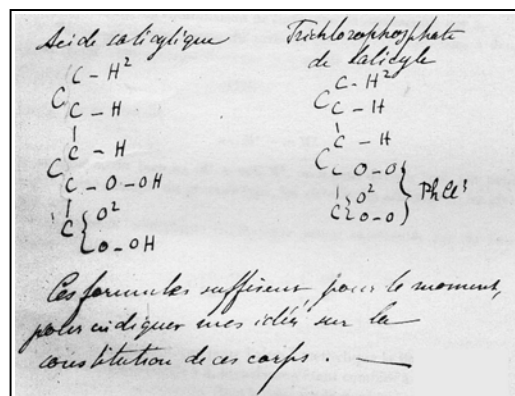 Acide salicylique
C – H²
C
C – H
C
C – H
C
C – O – OH
C { O²
O – OH
Trichlorophosphate
de Salicyle
C – H²
C
C – H
C – H
C
C – O – O
C { O²
O – O } PhCl³
Ces formules suffisent pour le moment,
pour indiquer mes idées sur la
constitution de ces corps. —